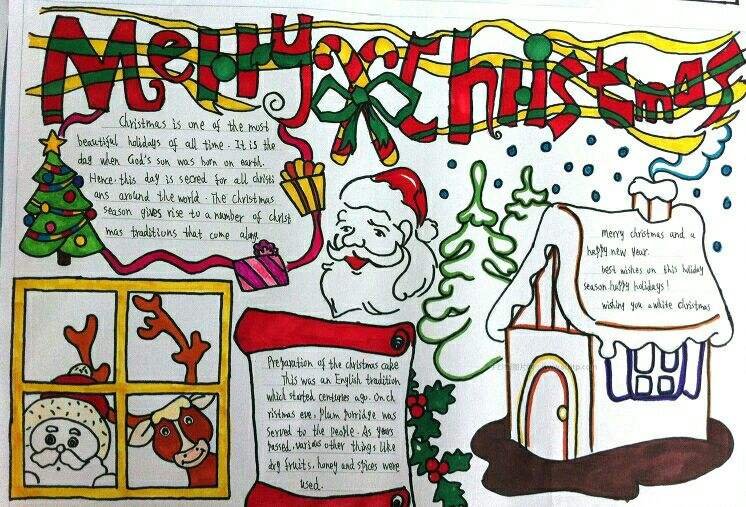 Merry Christmas
Christmas is one of the most
beautiful holidays of all time. It is the
day when God's sun was born on earth.
Hence, this day is secred for all christi
ans around the world. The christmas
season gives rise to a number of christ
mas traditions that come along
merry christmas and a
happy new year.
best wishes on this holiday
season. happy holidays!
wishing you a white christmas
Preparation of the christmas cake
This was an English tradition
which started centuries ago. On ch
ristmas eve, plum porridge was
served to the people. As years
passed, various other things like
dry fruits, honey and spices were
used.